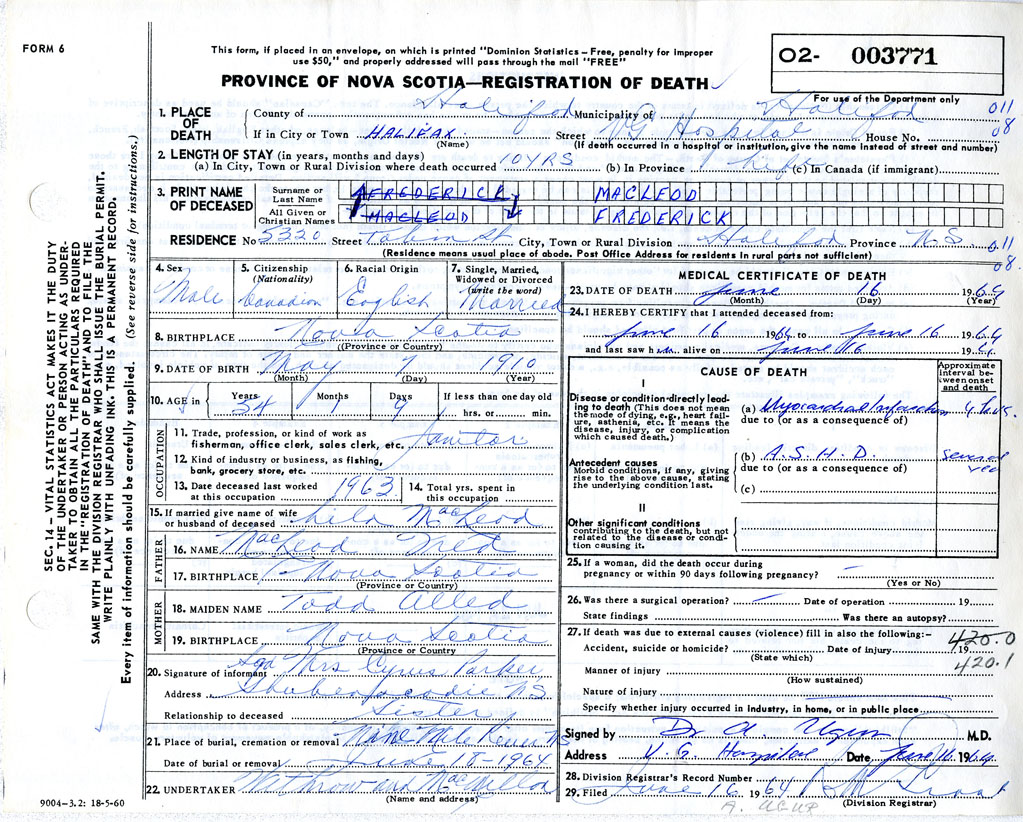 FORM 6
This form, if placed in an envelope, on which is printed "Dominion Statistics – Free, penalty for improper
use $50," and properly addressed will pass through the mail "FREE"
O2- 003771
PROVINCE OF NOVA SCOTIA—REGISTRATION OF DEATH
For use of the Department only
1. PLACE OF DEATH
County of Halifax Municipality of Halifax 011
If in City or Town HALIFAX Street VG Hospital House No. 08
(Name) (If death occurred in a hospital or institution, give the name instead of street and number)
2. LENGTH OF STAY (in years, months and days)
(a) In City, Town or Rural Division where death occurred 10 YRS (b) In Province Life (c) In Canada (if immigrant)
3. PRINT NAME OF DECEASED
Surname or Last Name FREDERICK MACLEOD
All Given or Christian Names MACLEOD FREDERICK
RESIDENCE No 5320 Street Tobin St City, Town or Rural Division Halifax Province N.S. 011
(Residence means usual place of abode. Post Office Address for residents in rural parts not sufficient) 08.
4. Sex Male
5. Citizenship (Nationality) Canadian
6. Racial Origin English
7. Single, Married, Widowed or Divorced (write the word) Married
8. BIRTHPLACE Nova Scotia
(Province or Country)
9. DATE OF BIRTH May 7 1910
(Month) (Day) (Year)
10. AGE in Years 54 Months 1 Days 9 If less than one day old
hrs. or min.
OCCUPATION
11. Trade, profession, or kind of work as
fisherman, office clerk, sales clerk, etc. Janitor
12. Kind of industry or business, as fishing,
bank, grocery store, etc.
13. Date deceased last worked
at this occupation 1963
14. Total yrs. spent in
this occupation
15. If married give name of wife
or husband of deceased Lila MacLeod
FATHER
16. NAME MacLeod Fred
17. BIRTHPLACE Nova Scotia
(Province or Country)
MOTHER
18. MAIDEN NAME Todd
19. BIRTHPLACE Nova Scotia
(Province or Country
20. Signature of informant Sgd Mrs Cyrus Parker
Address Shubenacadie NS
Relationship to deceased Sister
21. Place of burial, cremation or removal Nine Mile River NS
Date of burial or removal June 18-1964
22. UNDERTAKER Withrow and MacMillan
(Name and address)
MEDICAL CERTIFICATE OF DEATH
23. DATE OF DEATH June 16 1964
(Month) (Day) (Year)
24. I HEREBY CERTIFY that I attended deceased from:
June 16 1964 to June 16 1964
and last saw him alive on June 16 1964
CAUSE OF DEATH
Approximate interval between onset and death
I
Disease or condition directly leading
to death (This does not mean
the mode of dying, e.g., heart failure,
asthenia, etc. It means the
disease, injury, or complication
which caused death.)
(a) Myocardial Infarction 4 hrs.
due to (or as a consequence of)
Antecedent causes
Morbid conditions, if any, giving
rise to the above cause, stating
the underlying condition last.
(b) A.S.H.D. several
due to (or as a consequence of)
(c)
II
Other significant conditions
contributing to the death, but not
related to the disease or condition
causing it.
25. If a woman, did the death occur during
pregnancy or within 90 days following pregnancy? —
(Yes or No)
26. Was there a surgical operation? — Date of operation 19
State findings Was there an autopsy?
27. If death was due to external causes (violence) fill in also the following:– 420.0
Accident, suicide or homicide? Date of injury 19
(State which) 420.1
Manner of injury
(How sustained)
Nature of injury
Specify whether injury occurred in industry, in home, or in public place
Signed by Dr A. Ugur M.D.
Address V. G. Hospital Date June 16 1964
28. Division Registrar's Record Number
29. Filed June 16 1964
(Division Registrar)
A. UGUR
9004–3.2: 18-5-60
SEC. 14 – VITAL STATISTICS ACT MAKES IT THE DUTY
OF THE UNDERTAKER OR PERSON ACTING AS UNDER-
TAKER TO OBTAIN ALL THE PARTICULARS REQUIRED
IN THE "REGISTRATION OF DEATH" AND TO FILE THE
SAME WITH THE DIVISION REGISTRAR WHO SHALL ISSUE THE BURIAL PERMIT.
WRITE PLAINLY WITH UNFADING INK. THIS IS A PERMANENT RECORD.
Every item of information should be carefully supplied. (See reverse side for instructions.)